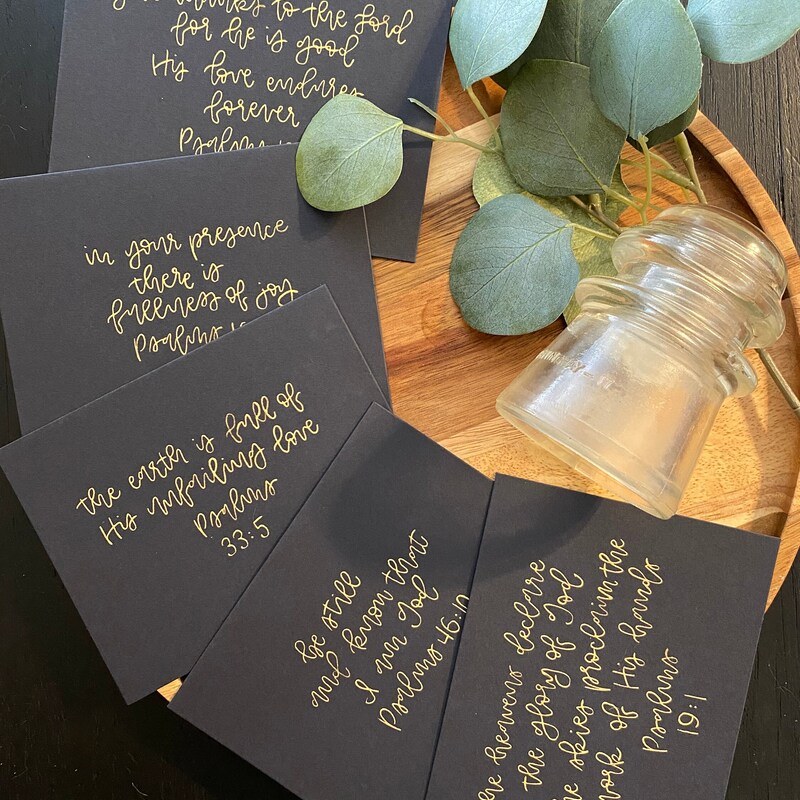 give thanks to the Lord
for he is good
His love endures
forever
Psalms
in your presence
there is
fullness of joy
Psalms
the earth is full of
His unfailing love
Psalms
33:5
be still
and know that
I am God
Psalms 46:10
the heavens declare
the glory of God
the skies proclaim the
work of His hands
Psalms
19:1